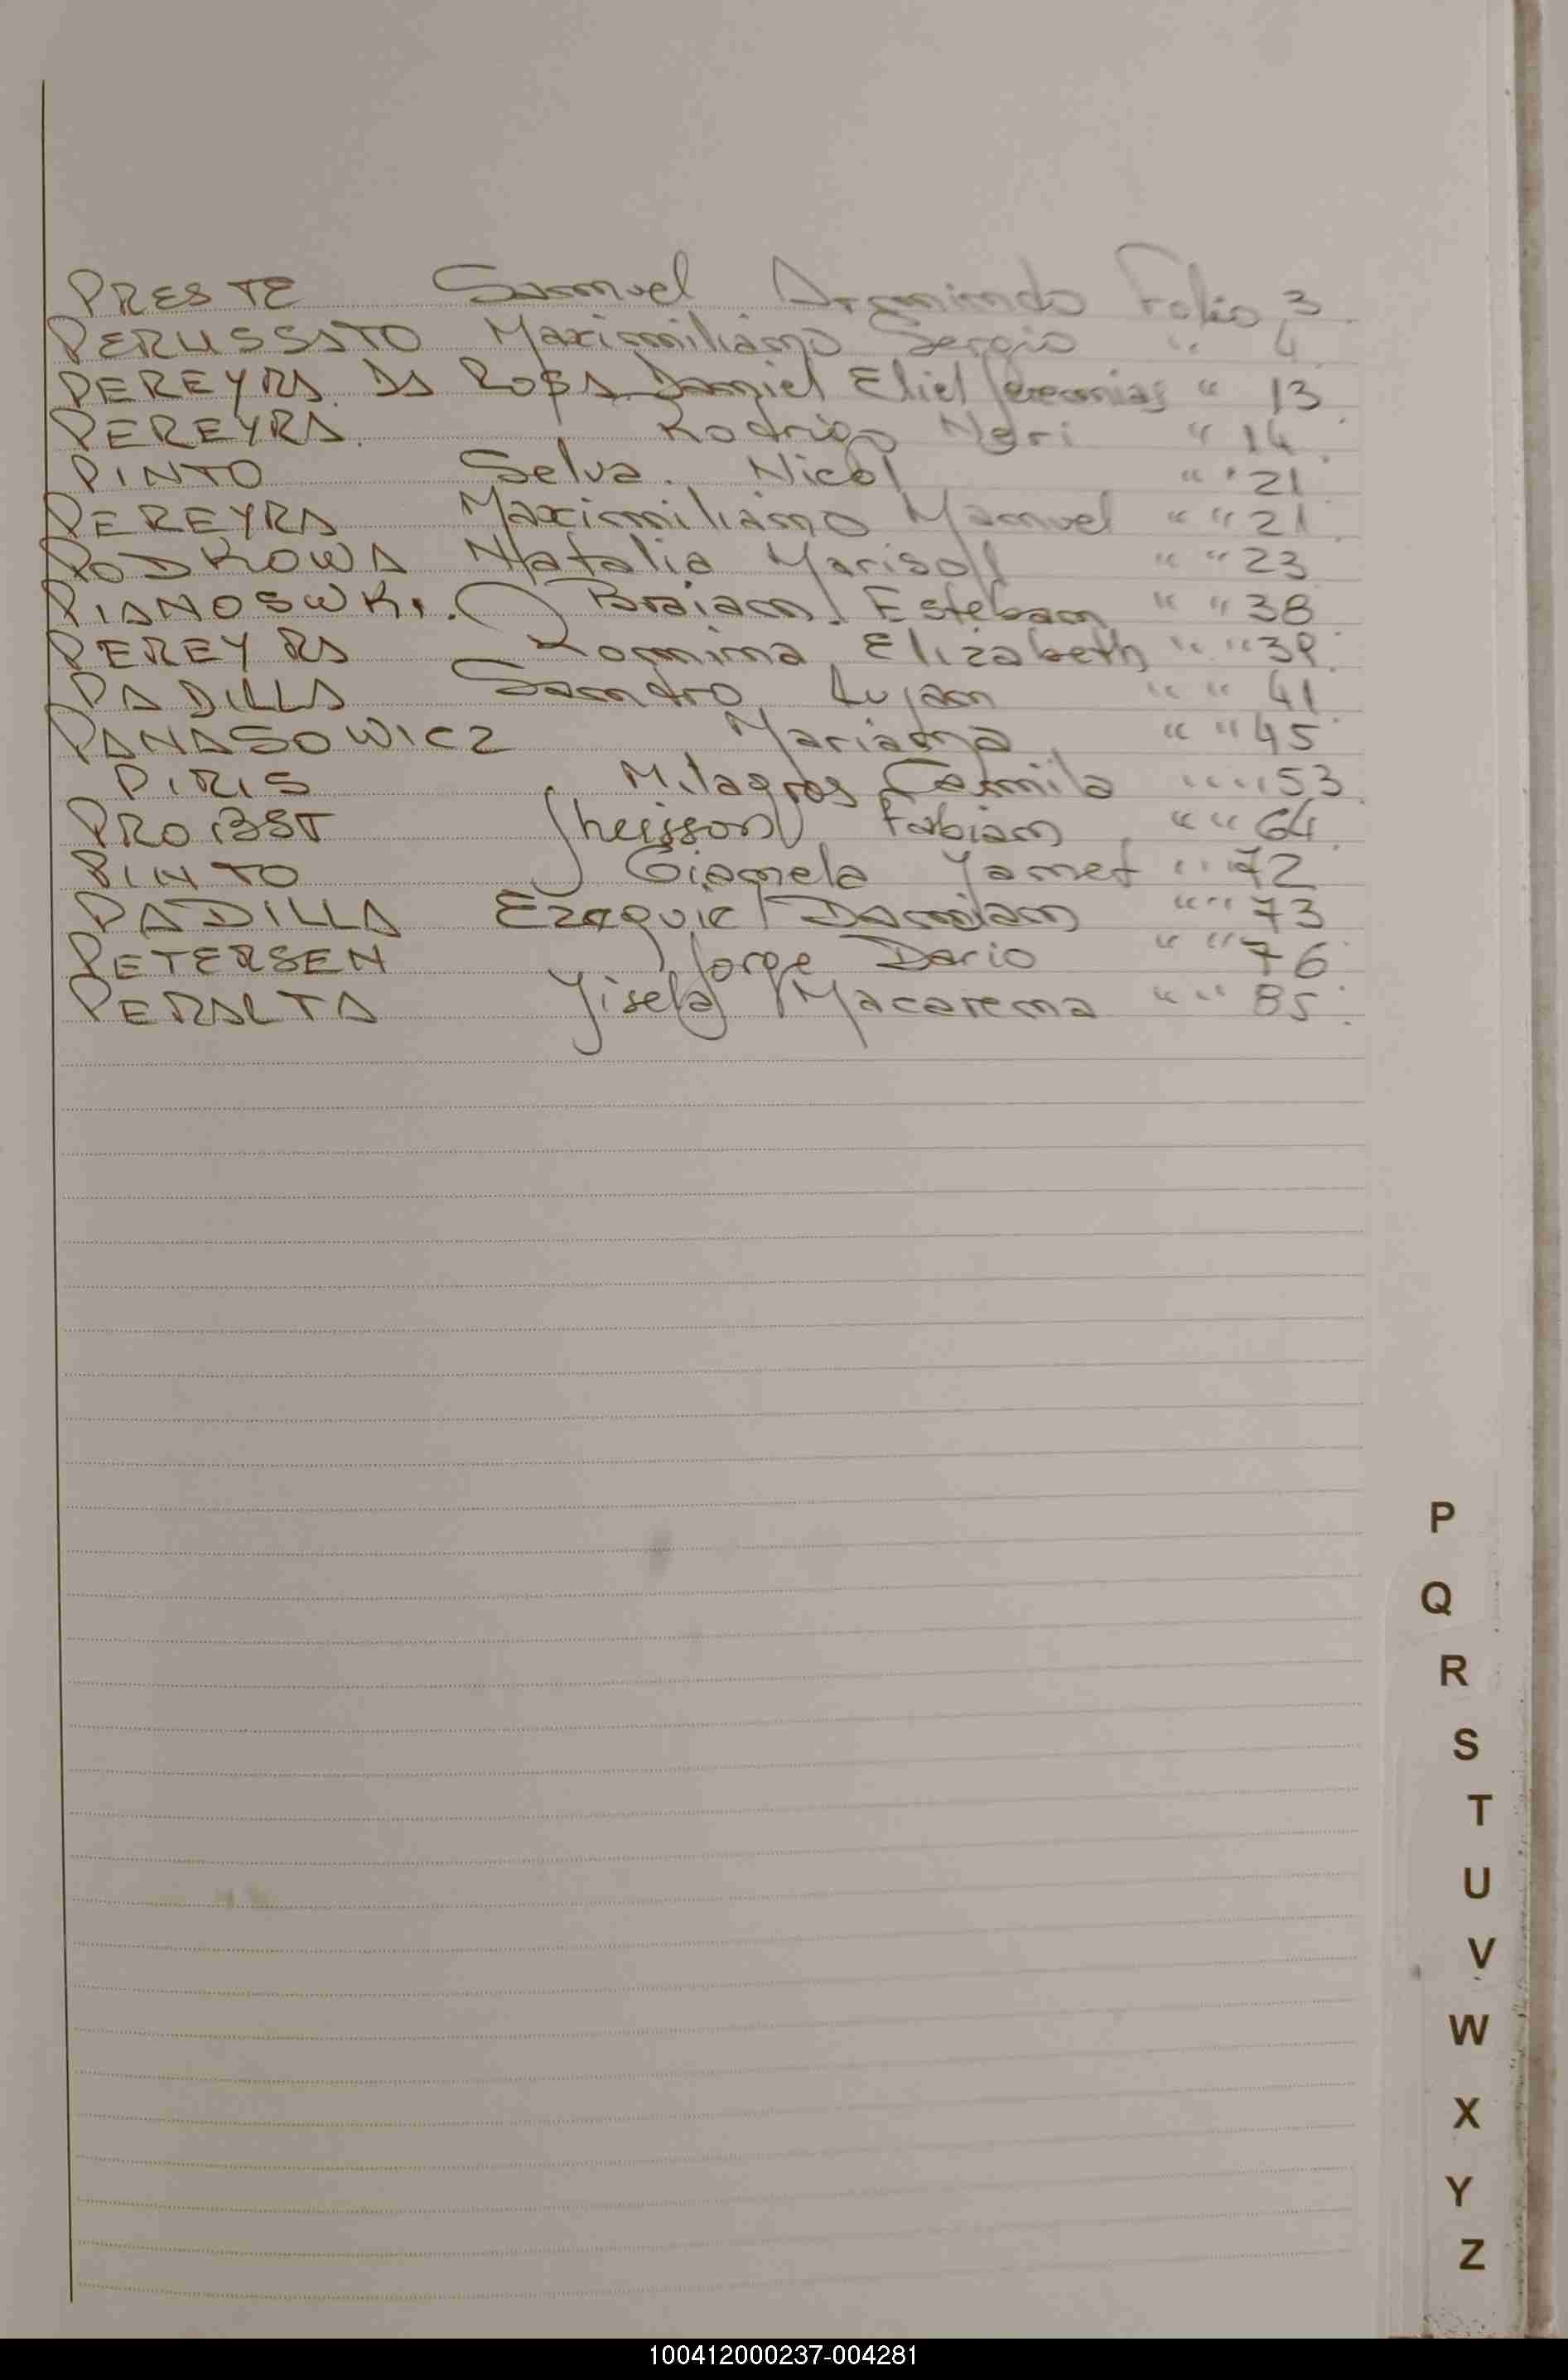 PRESTE Samuel Armindo Folio 3
PERUSSATO Maximiliano Sergio " 4
PEREYRA DA ROSA Daniel Eliel Jeremias " 13
PEREYRA Rodrigo Neri " 14
PINTO Selva Nicol " " 21
PEREYRA Maximiliano Manuel " " 21
PODKOWA Natalia Marisol " " 23
PIANOSWKI. Braian Esteban " " 38
PEREYRA Romina Elizabeth " " 39
PADILLA Sandro Lujan " " 41
PANASOWICZ Mariana " " 45
PIRIS Milagros Camila " " 53
PROBST Jheisson Fabian " " 64
PINTO Gianela Yamet " " 72
PADILLA Ezequiel Damian " " 73
PETERSEN Jorge Dario " " 76
PERALTA Yisela Macarena " " 85
P
Q
R
S
T
U
V
W
X
Y
Z
100412000237-004281